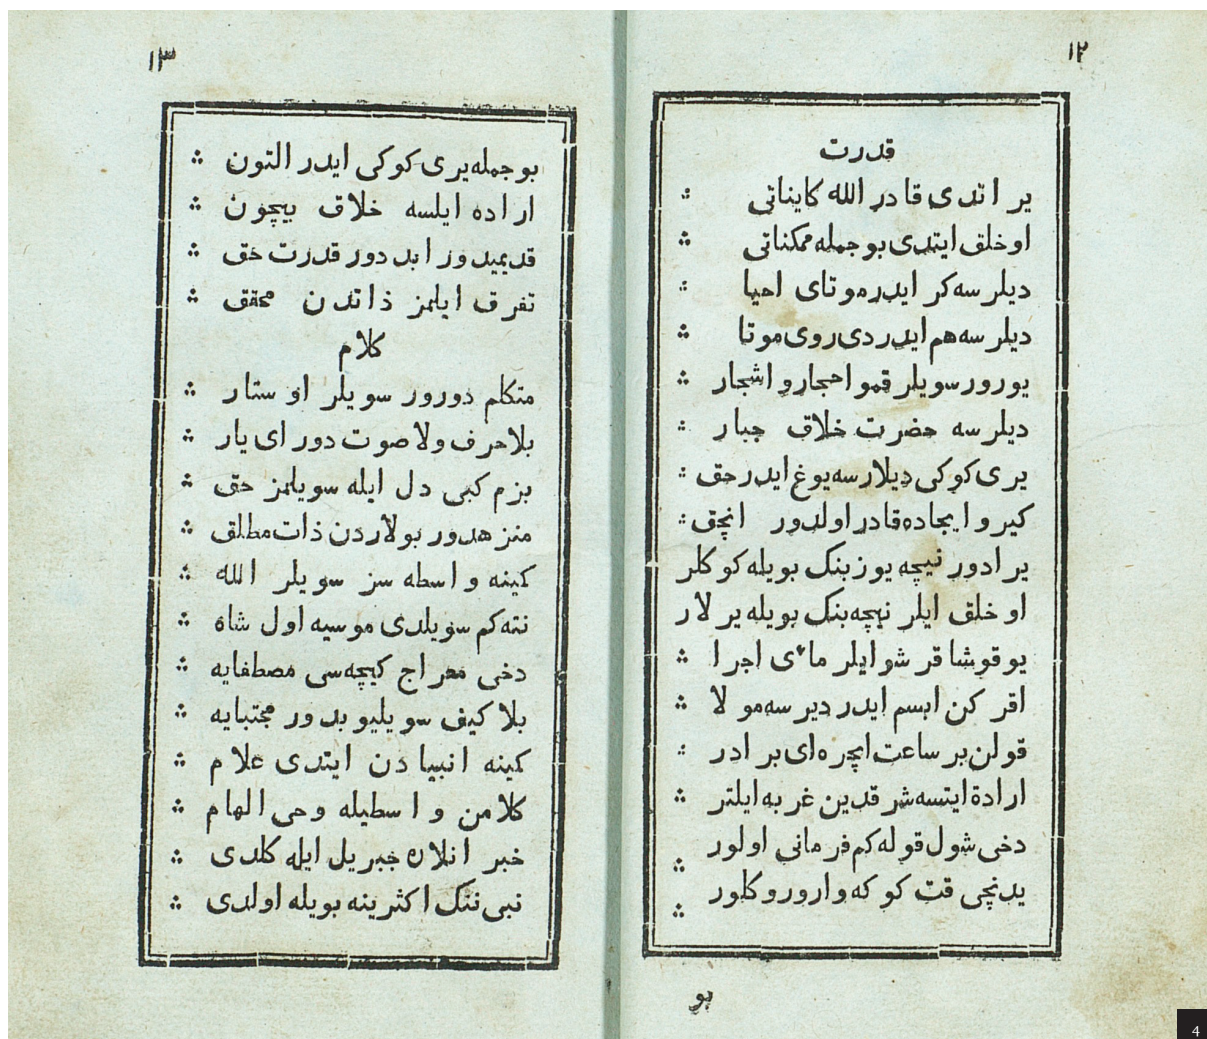 ١٢
قدرت
یر اتدی قادر الله کایناتی
او خلق ایتدی بو جمله ممکناتی
دیلر سه کر ایدر موتای احیا
دیلر سه هم ایدر دی روی موتا
یورور سویلر قمو احجار و اشجار
دیلر سه حضرت خلاق جبار
یری کوکی دیلارسه یوغ ایدر حق
کیرو ایجاده قادر اولدور انچق
یرادور نیچه یوز بنک بویله کوکلر
او خلق ایلر نیچه بنک بویله یر لار
یوقوشا قر شو ایلر مائی اجرا
اقر کن ابسم ایدر دیر سه مولا
قولن بر ساعت ایچره ای برادر
ارادة ایتسه شر قدین غر به ایلتر
دخی شول قوله کم فرمانی اولور
یدنچی قت کو که وارور و کلور
بو
١٣
بو جمله یری کوکی ایدر التون
اراده ایلسه خلاق بیچون
قدیمیدور ابددور قدرت حق
تفرق ایلمز ذاتدن محقق
کلام
متکلم دورور سویلر او ستار
بلا حرف ولا صوت دور ای یار
بزم کبی دل ایله سویلمز حق
منزهدور بولاردن ذات مطلق
کمینه واسطه سز سویلر الله
نته کم سویلدی موسیه اول شاه
دخی معراج کیچه سی مصطفایه
بلا کیف سویلیوبدور مجتبایه
کمینه انبیادن ایتدی علام
کلامن واسطیله وحی الهام
خبر انلاره جبریل ایله کلدی
نبی ننک اکثرینه بویله اولدی
4